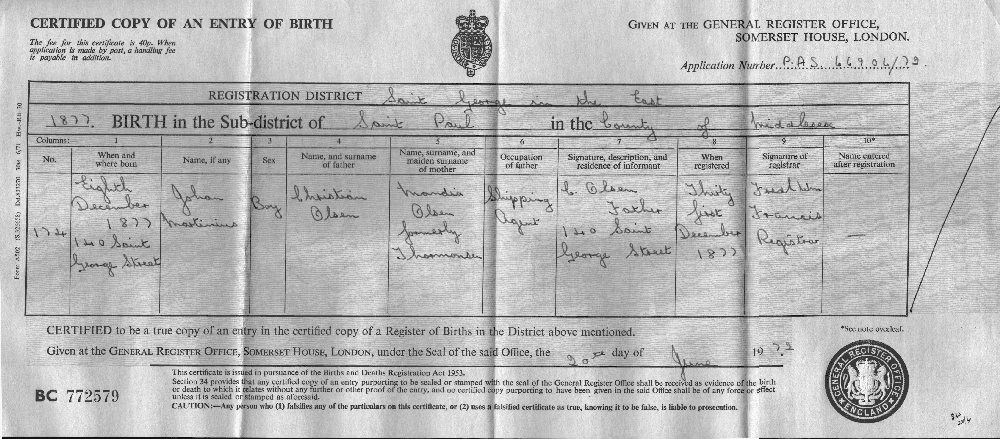 CERTIFIED COPY OF AN ENTRY OF BIRTH
GIVEN AT THE GENERAL REGISTER OFFICE,
SOMERSET HOUSE, LONDON.
The fee for this certificate is 40p. When
application is made by post, a handling fee
is payable in addition.
Application Number P.A.S. 66904/72.
REGISTRATION DISTRICT Saint George in the East
1877. BIRTH in the Sub-district of Saint Paul in the County of Middlesex
Columns: 1 2 3 4 5 6 7 8 9 10*
No. When and where born Name, if any Sex Name, and surname of father Name, surname, and maiden surname of mother Occupation of father Signature, description, and residence of informant When registered Signature of registrar Name entered after registration
174
Eighth
December
1877
140 Saint
George Street
Johan
Martinius
Boy
Christian
Olsen
Olsen
formerly
Shipping
Agent
C. Olsen
Father
140 Saint
George Street
Thirty
first
December
1877
Francis
Registrar
—
CERTIFIED to be a true copy of an entry in the certified copy of a Register of Births in the District above mentioned.
*See note overleaf.
Given at the GENERAL REGISTER OFFICE, SOMERSET HOUSE, LONDON, under the Seal of the said Office, the 20th day of June 1972
BC 772579
This certificate is issued in pursuance of the Births and Deaths Registration Act 1953.
Section 34 provides that any certified copy of an entry purporting to be sealed or stamped with the seal of the General Register Office shall be received as evidence of the birth
or death to which it relates without any further or other proof of the entry, and no certified copy purporting to have been given in the said Office shall be of any force or effect
unless it is sealed or stamped as aforesaid.
CAUTION:—Any person who (1) falsifies any of the particulars on this certificate, or (2) uses a falsified certificate as true, knowing it to be false, is liable to prosecution.
GENERAL REGISTER OFFICE
ENGLAND